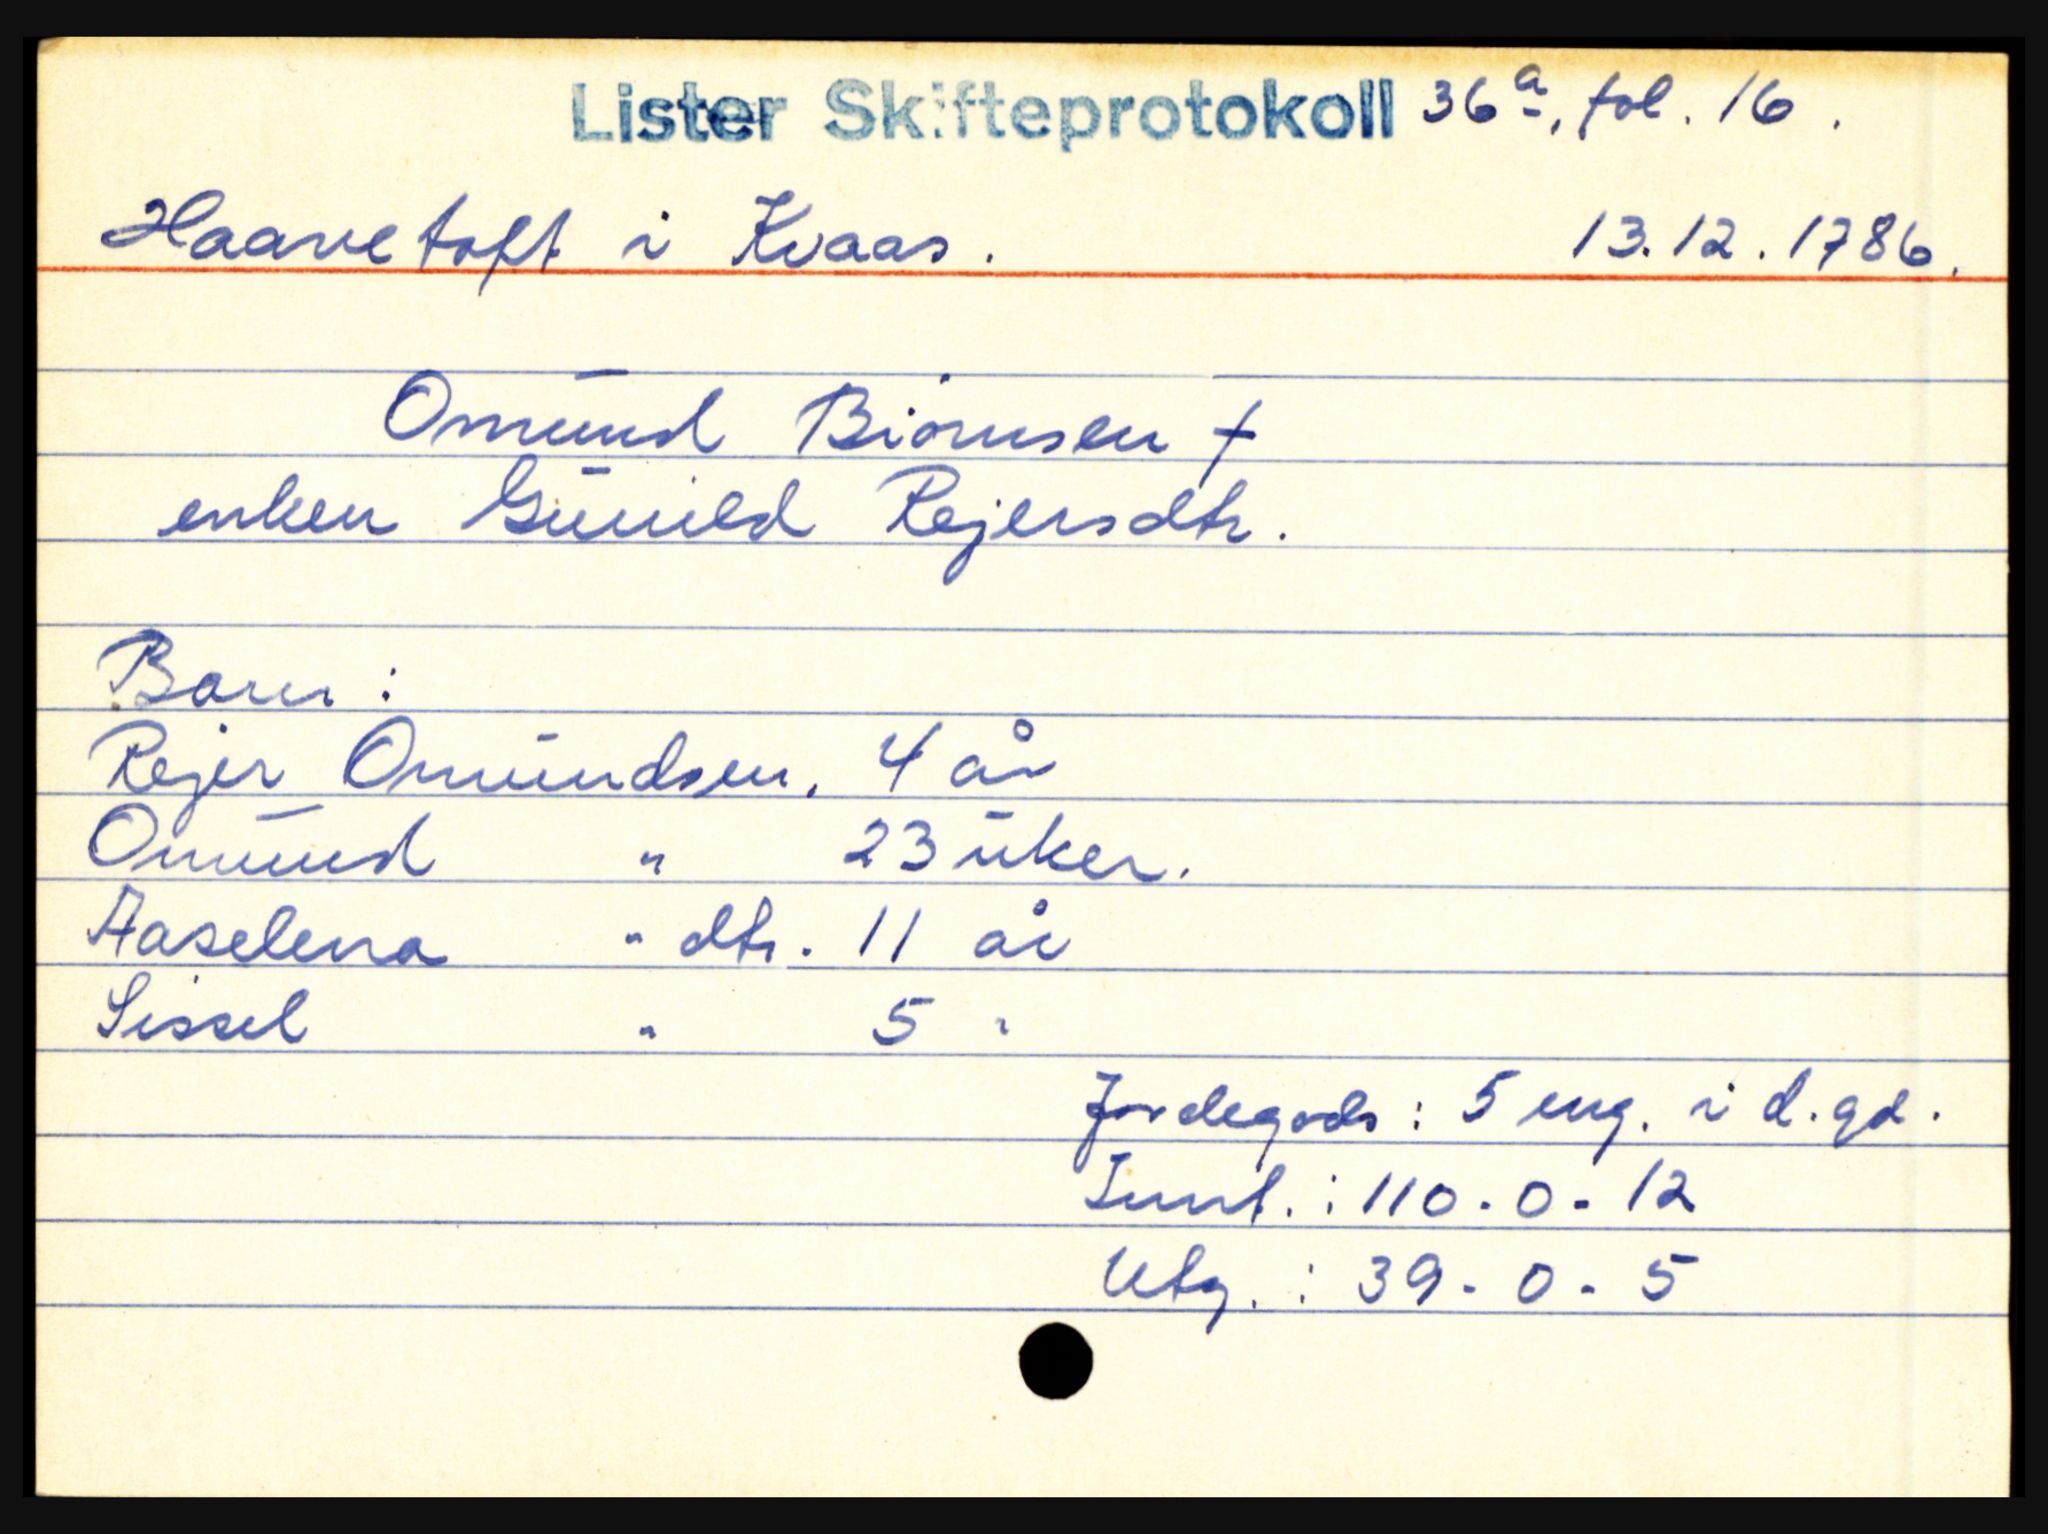 Lister Skifteprotokoll 36a, fol. 16.
Haavetoft i Kvaas. 13.12.1786.
Omund Biörnsen †
enken Gunild Rejersdtr.
Barn:
Rejer Omundsen, 4 år
Omund " 23 uker.
Aaselena " dtr. 11 år
Sissel " 5 "
Jordegods: 5 eng. i d. gd.
Innt.: 110-0-12
Utg.: 39-0-5